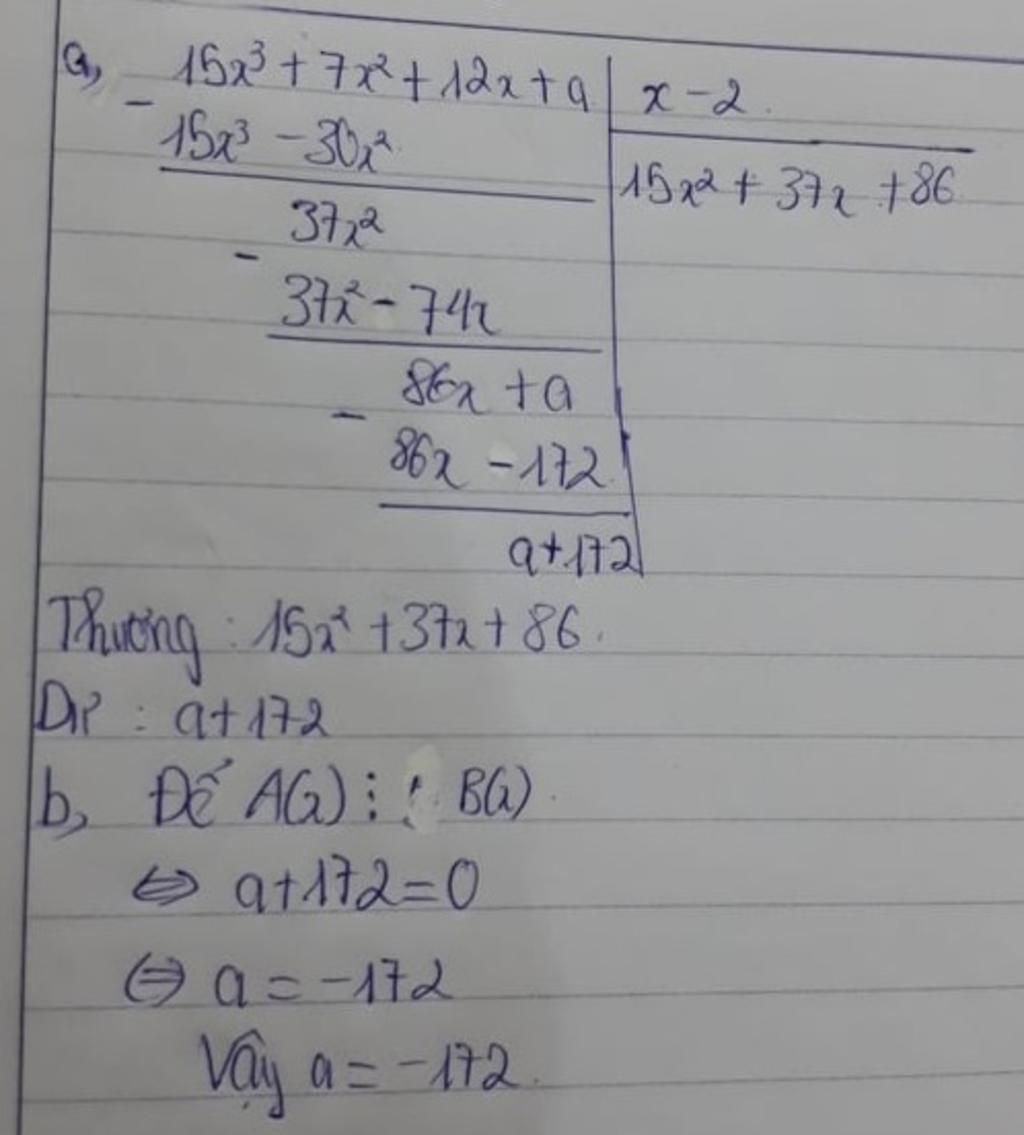 a, 15x³ + 7x² + 12x + a | x - 2
- 15x³ - 30x² | 15x² + 37x + 86
37x²
- 37x² - 74x
86x + a
- 86x - 172
a + 172
Thương : 15x² + 37x + 86.
Dư : a + 172
b, Để A(x) ⋮ B(x).
⇔ a + 172 = 0
⇔ a = -172
Vậy a = -172.